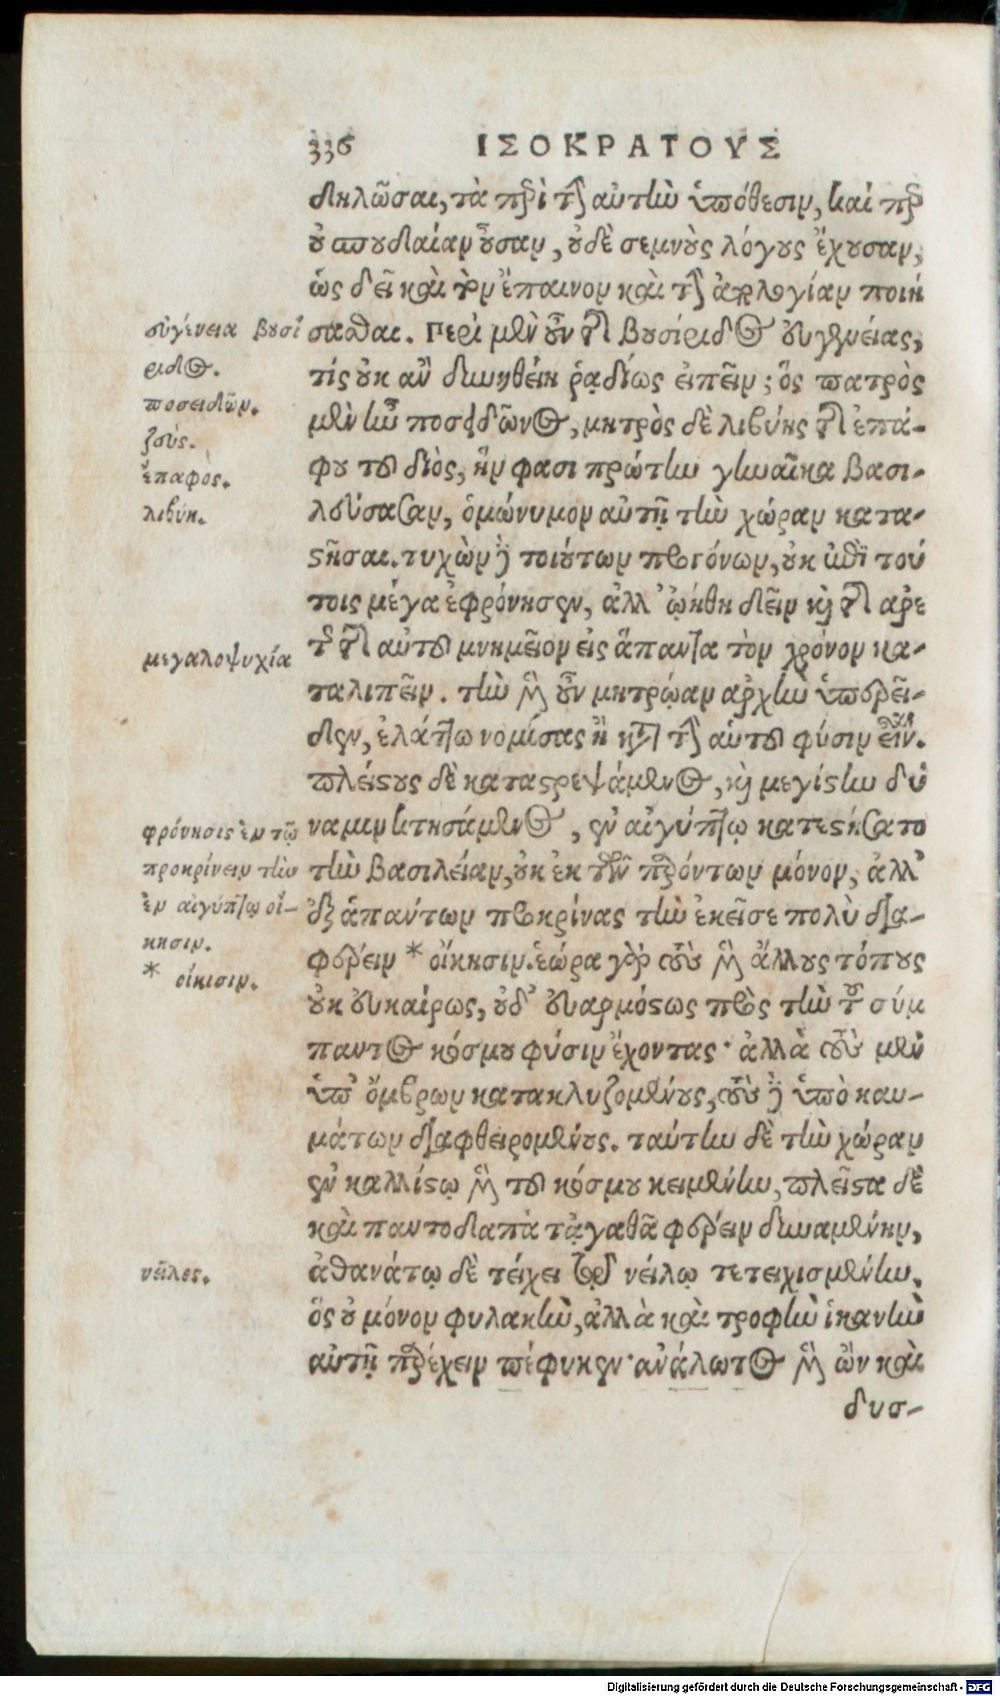 336 ΙΣΟΚΡΑΤΟΥΣ
δηλῶσαι, τὰ περὶ τὴν αὐτὴν ὑπόθεσιν, καίπερ
οὐ σπουδαίαν οὖσαν, οὐδὲ σεμνοὺς λόγους ἔχουσαν,
ὡς δεῖ καὶ τὸν ἔπαινον καὶ τὴν ἀπολογίαν ποιή
σασθαι. Περὶ μὲν οὖν τῆς βουσίριδος εὐγενείας,
τίς οὐκ ἂν δυνηθείη ῥᾳδίως εἰπεῖν; ὃς πατρὸς
μὲν ἦν ποσειδῶνος, μητρὸς δὲ λιβύης τῆς ἐπά-
φου τοῦ διὸς, ἥν φασι πρώτην γυναῖκα βασι-
λεύσασαν, ὁμώνυμον αὐτῇ τὴν χώραν κατα-
στῆσαι. τυχὼν δὲ τοιούτων προγόνων, οὐκ ἐπὶ τού
τοις μέγα ἐφρόνησεν, ἀλλ' ᾠήθη δεῖν καὶ τῆς ἀρε
τῆς τῆς αὐτοῦ μνημεῖον εἰς ἅπαντα τὸν χρόνον κα-
ταλιπεῖν. τὴν μὲν οὖν μητρῴαν ἀρχὴν ὑπερεῖ-
δεν, ἐλάττω νομίσας ἢ κατὰ τὴν αὑτοῦ φύσιν εἶναι.
πλείστους δὲ καταστρεψάμενος, καὶ μεγίστην δύ
ναμιν κτησάμενος, ἐν αἰγύπτῳ κατεστήσατο
τὴν βασιλείαν, οὐκ ἐκ τῶν παρόντων μόνον, ἀλλ'
ἐξ ἁπάντων προκρίνας τὴν ἐκεῖσε πολὺ δια-
φέρειν * οἴκησιν. ἑώρα γὰρ τοὺς μὲν ἄλλους τόπους
οὐκ εὐκαίρως, οὐδ' εὐαρμόστως πρὸς τὴν τοῦ σύμ
παντος κόσμου φύσιν ἔχοντας· ἀλλὰ τοὺς μὲν
ὑπ' ὄμβρων κατακλυζομένους, τοὺς δὲ ὑπὸ καυ-
μάτων διαφθειρομένους. ταύτην δὲ τὴν χώραν
ἐν καλλίστῳ μὲν τοῦ κόσμου κειμένην, πλεῖστα δὲ
καὶ παντοδαπὰ τἀγαθὰ φέρειν δυναμένην,
ἀθανάτῳ δὲ τείχει τῷ νείλῳ τετειχισμένην.
ὃς οὐ μόνον φυλακὴν, ἀλλὰ καὶ τροφὴν ἱκανὴν
αὐτῇ παρέχειν πέφυκεν· ἀνάλωτος μὲν ὢν καὶ
δυσ-
εὐγένεια βουσί
ριδος.
ποσειδῶν.
ζεύς.
ἔπαφος.
λιβύη.
μεγαλοψυχία
φρόνησις ἐν τῷ
προκρίνειν τὴν
ἐν αἰγύπτῳ οἴ-
κησιν.
* οἴκισιν.
νεῖλος.
Digitalisierung gefördert durch die Deutsche Forschungsgemeinschaft - DFG